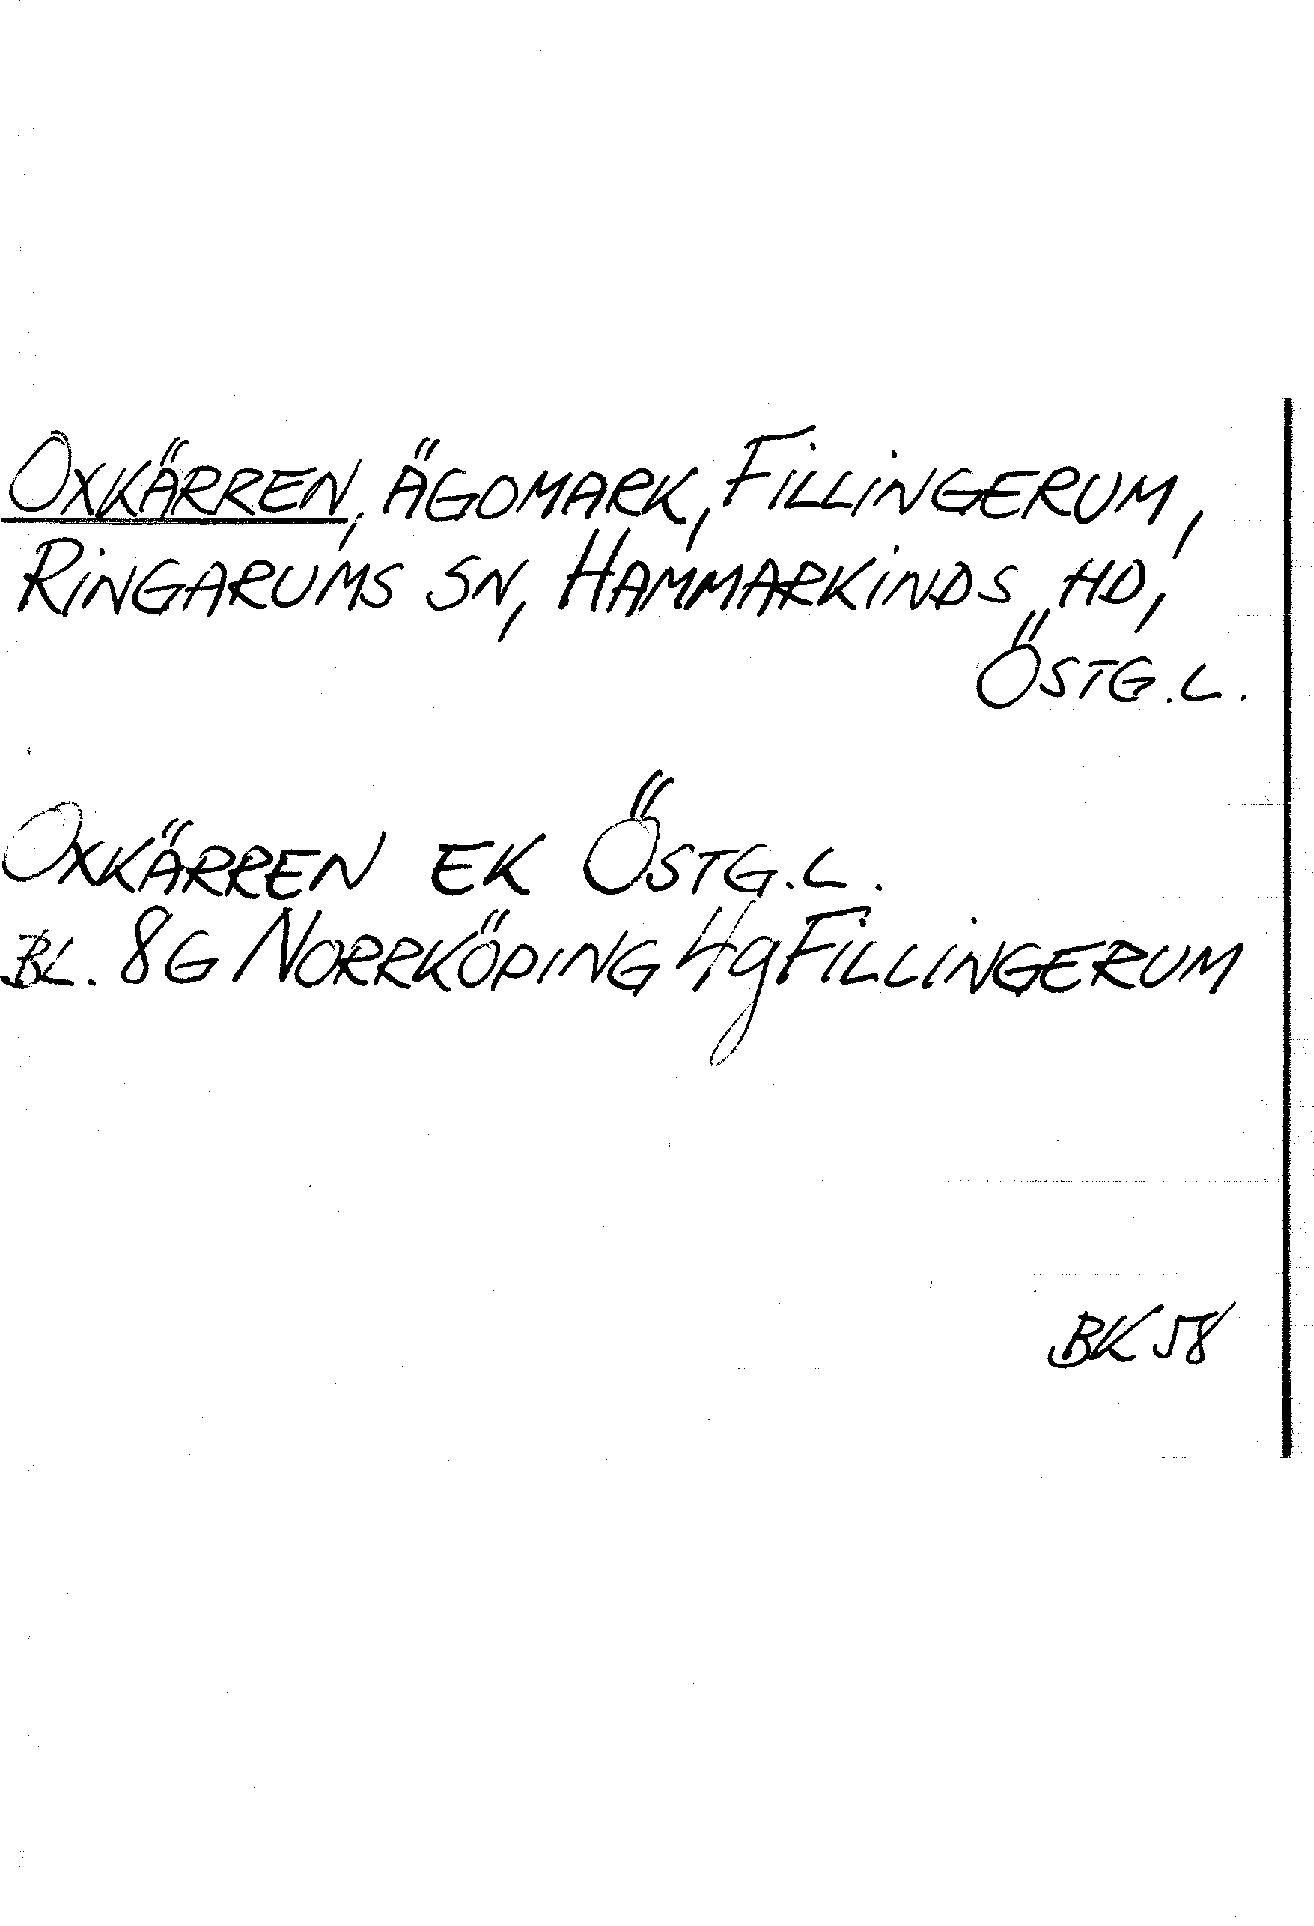 OXKÄRREN, ÄGOMARK, FILLINGERUM,
RINGARUMS SN, HAMMARKINDS HD,
ÖSTG.L.
OXKÄRREN EK ÖSTG.L.
BL. 8G NORRKÖPING 4g FILLINGERUM
BK 58